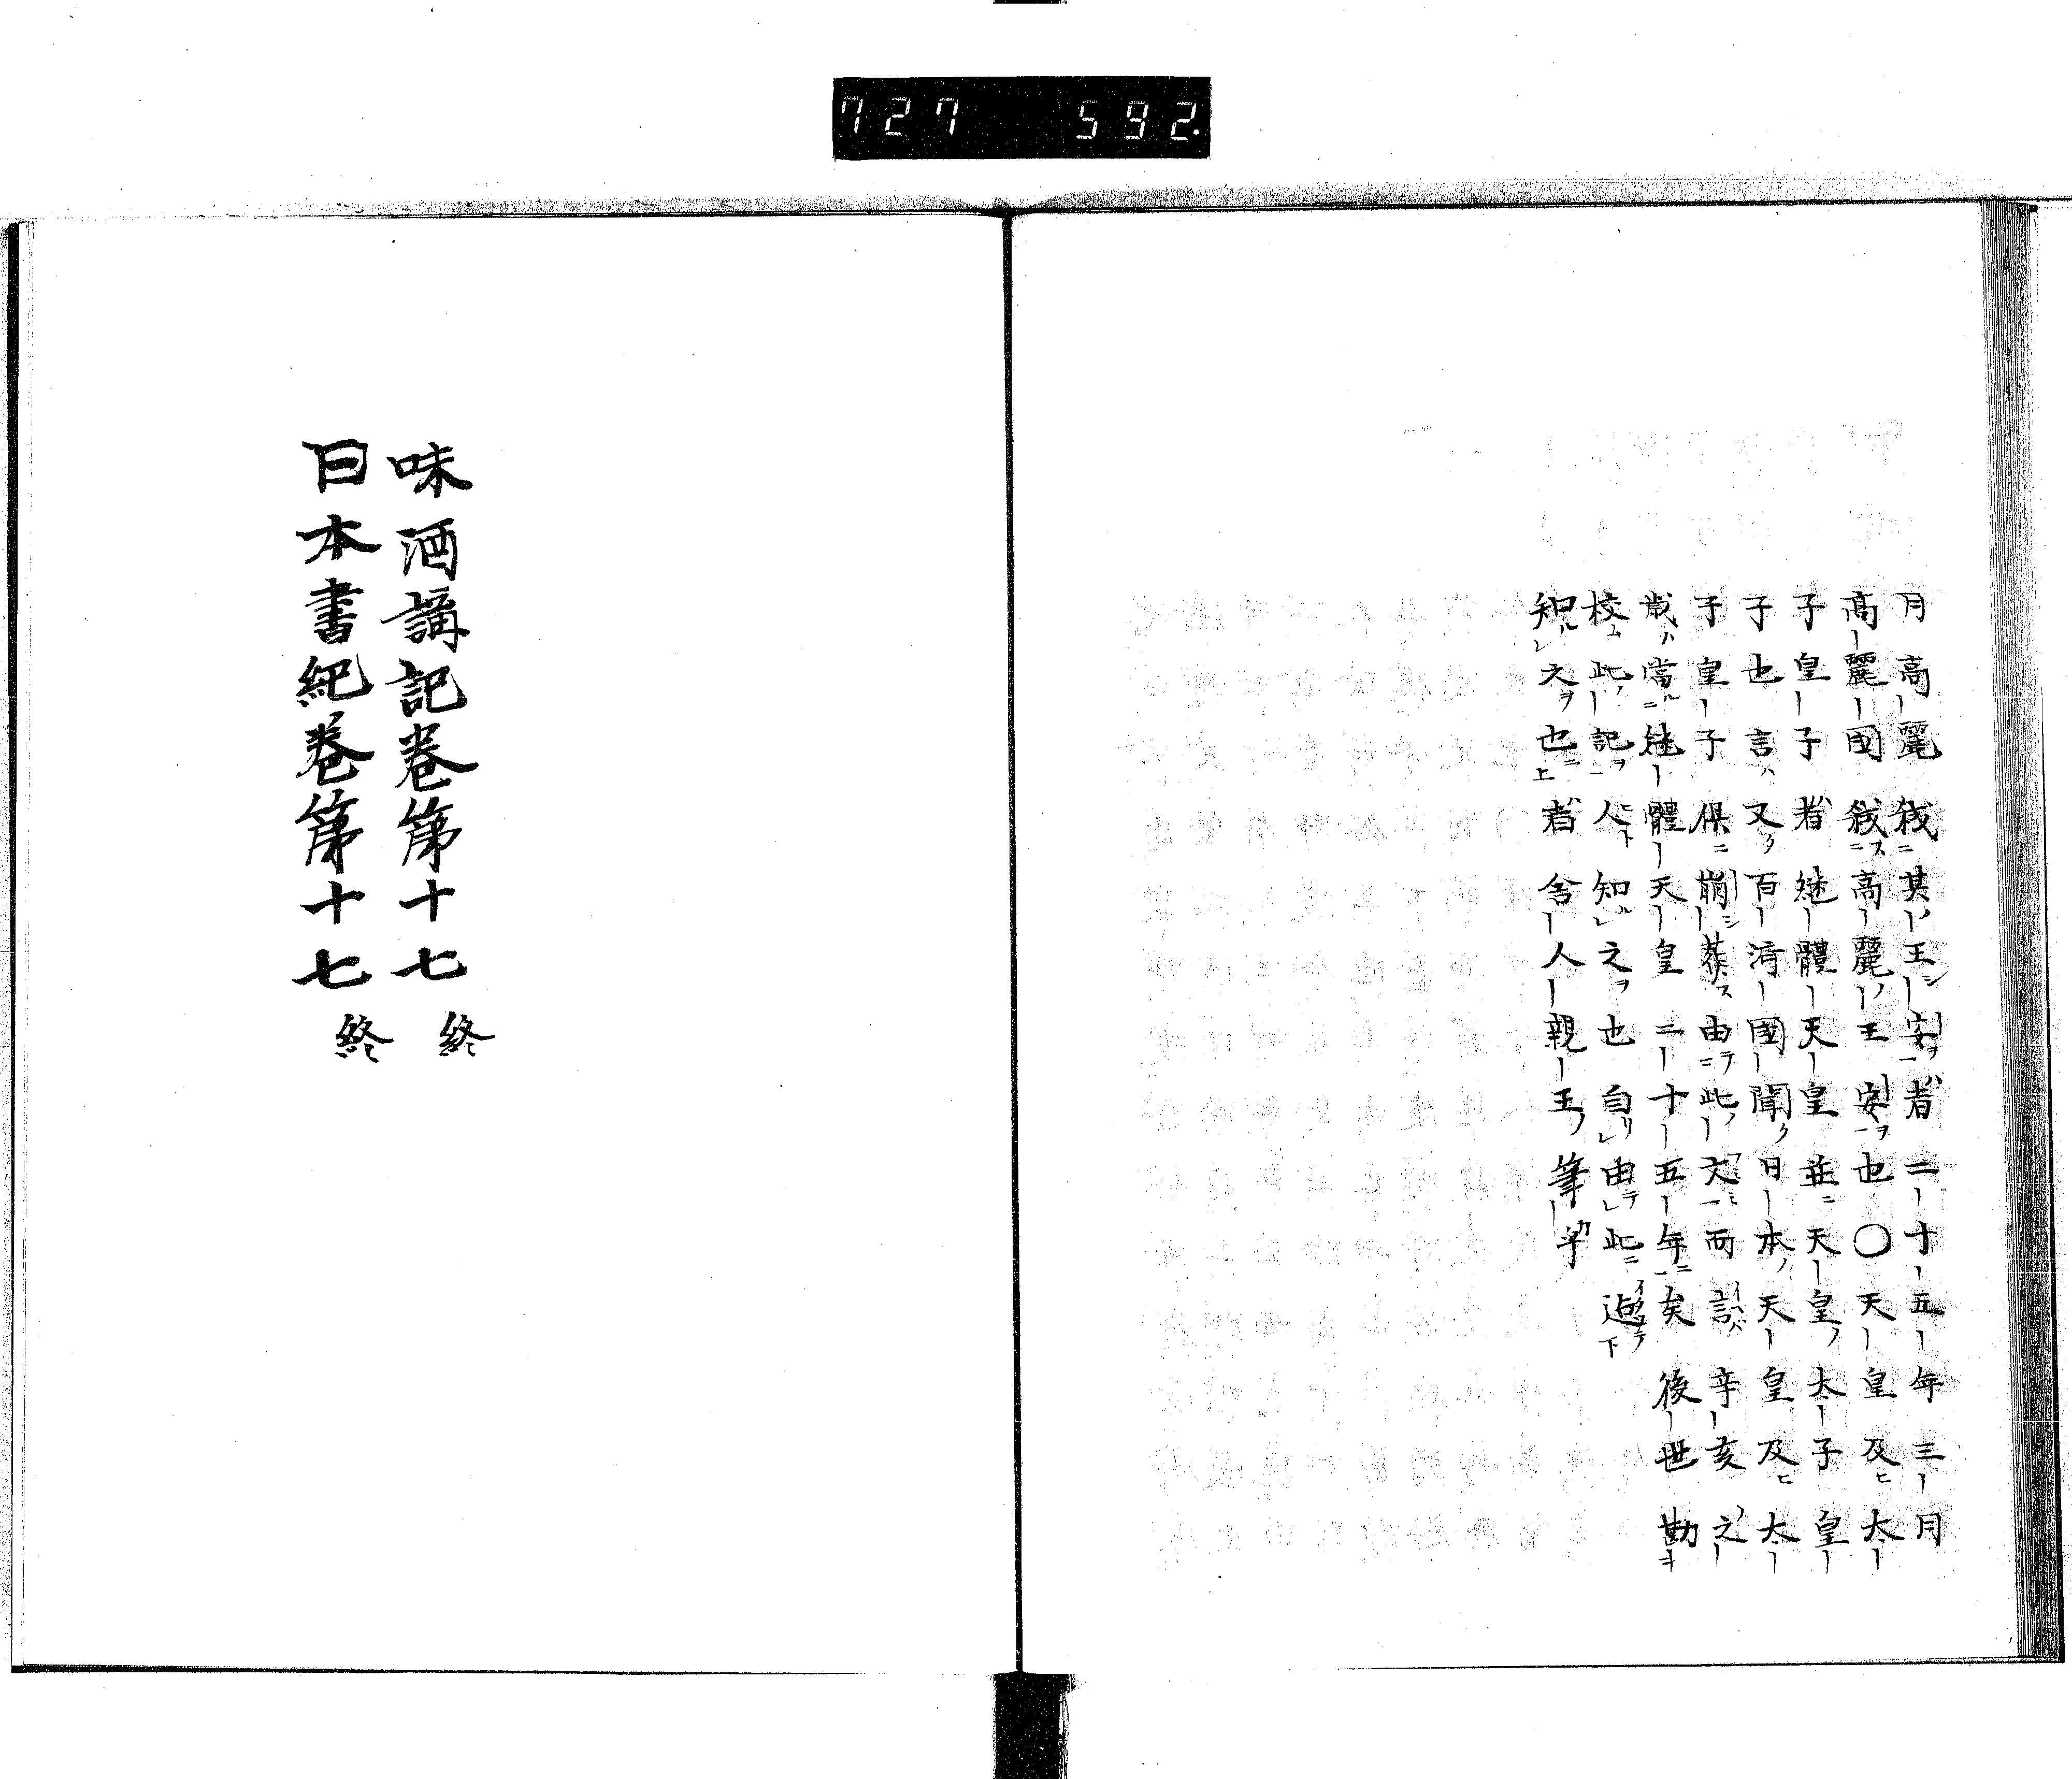 727 592.
月高麗弑其王安者二十五年三月
高麗國弑高麗王安也〇天皇及太
子皇子者継體天皇並天皇太子皇
子也言又百済國聞日本天皇及太
子皇子倶崩薨由此文而言辛亥之
歳當継體天皇二十五年矣後世勘
校此記人知之也自由此
知文也者舎人親王筆乎
味酒講記巻第十七終
日本書紀巻第十七終